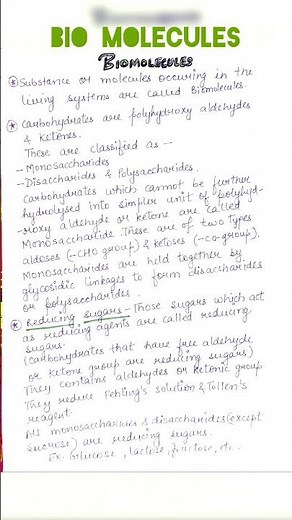 BIO MOLECULES
BIOMOLECULES
Substance or molecules occuring in the
living systems are called Biomolecules.
Carbohydrates are polyhydroxy aldehydes
& Ketones.
These are classified as --
-- Monosaccharides
-- Disaccharides & Polysaccharides.
Carbohydrates which cannot be further
hydrolysed into simpler unit of polyhyd-
-roxy aldehyde or ketone are called
Monosaccharide. These are of two Types
aldoses (-CHO group) & ketoses (-co-group).
Monosaccharides are held together by
glycosidic linkages to form disaccharides
or polysaccharides.
Reducing sugars - Those sugars which act
as reducing agents are called reducing
sugars.
(carbohydrates that have free aldehyde
or ketone group are reducing sugars)
They contains aldehydes or ketonic group
They reduce Fehling's solution & Tollen's
reagent.
All monosaccharides & disaccharides (except
sucrose) are reducing sugars.
Ex. Glucose, lactose, fructose, etc.